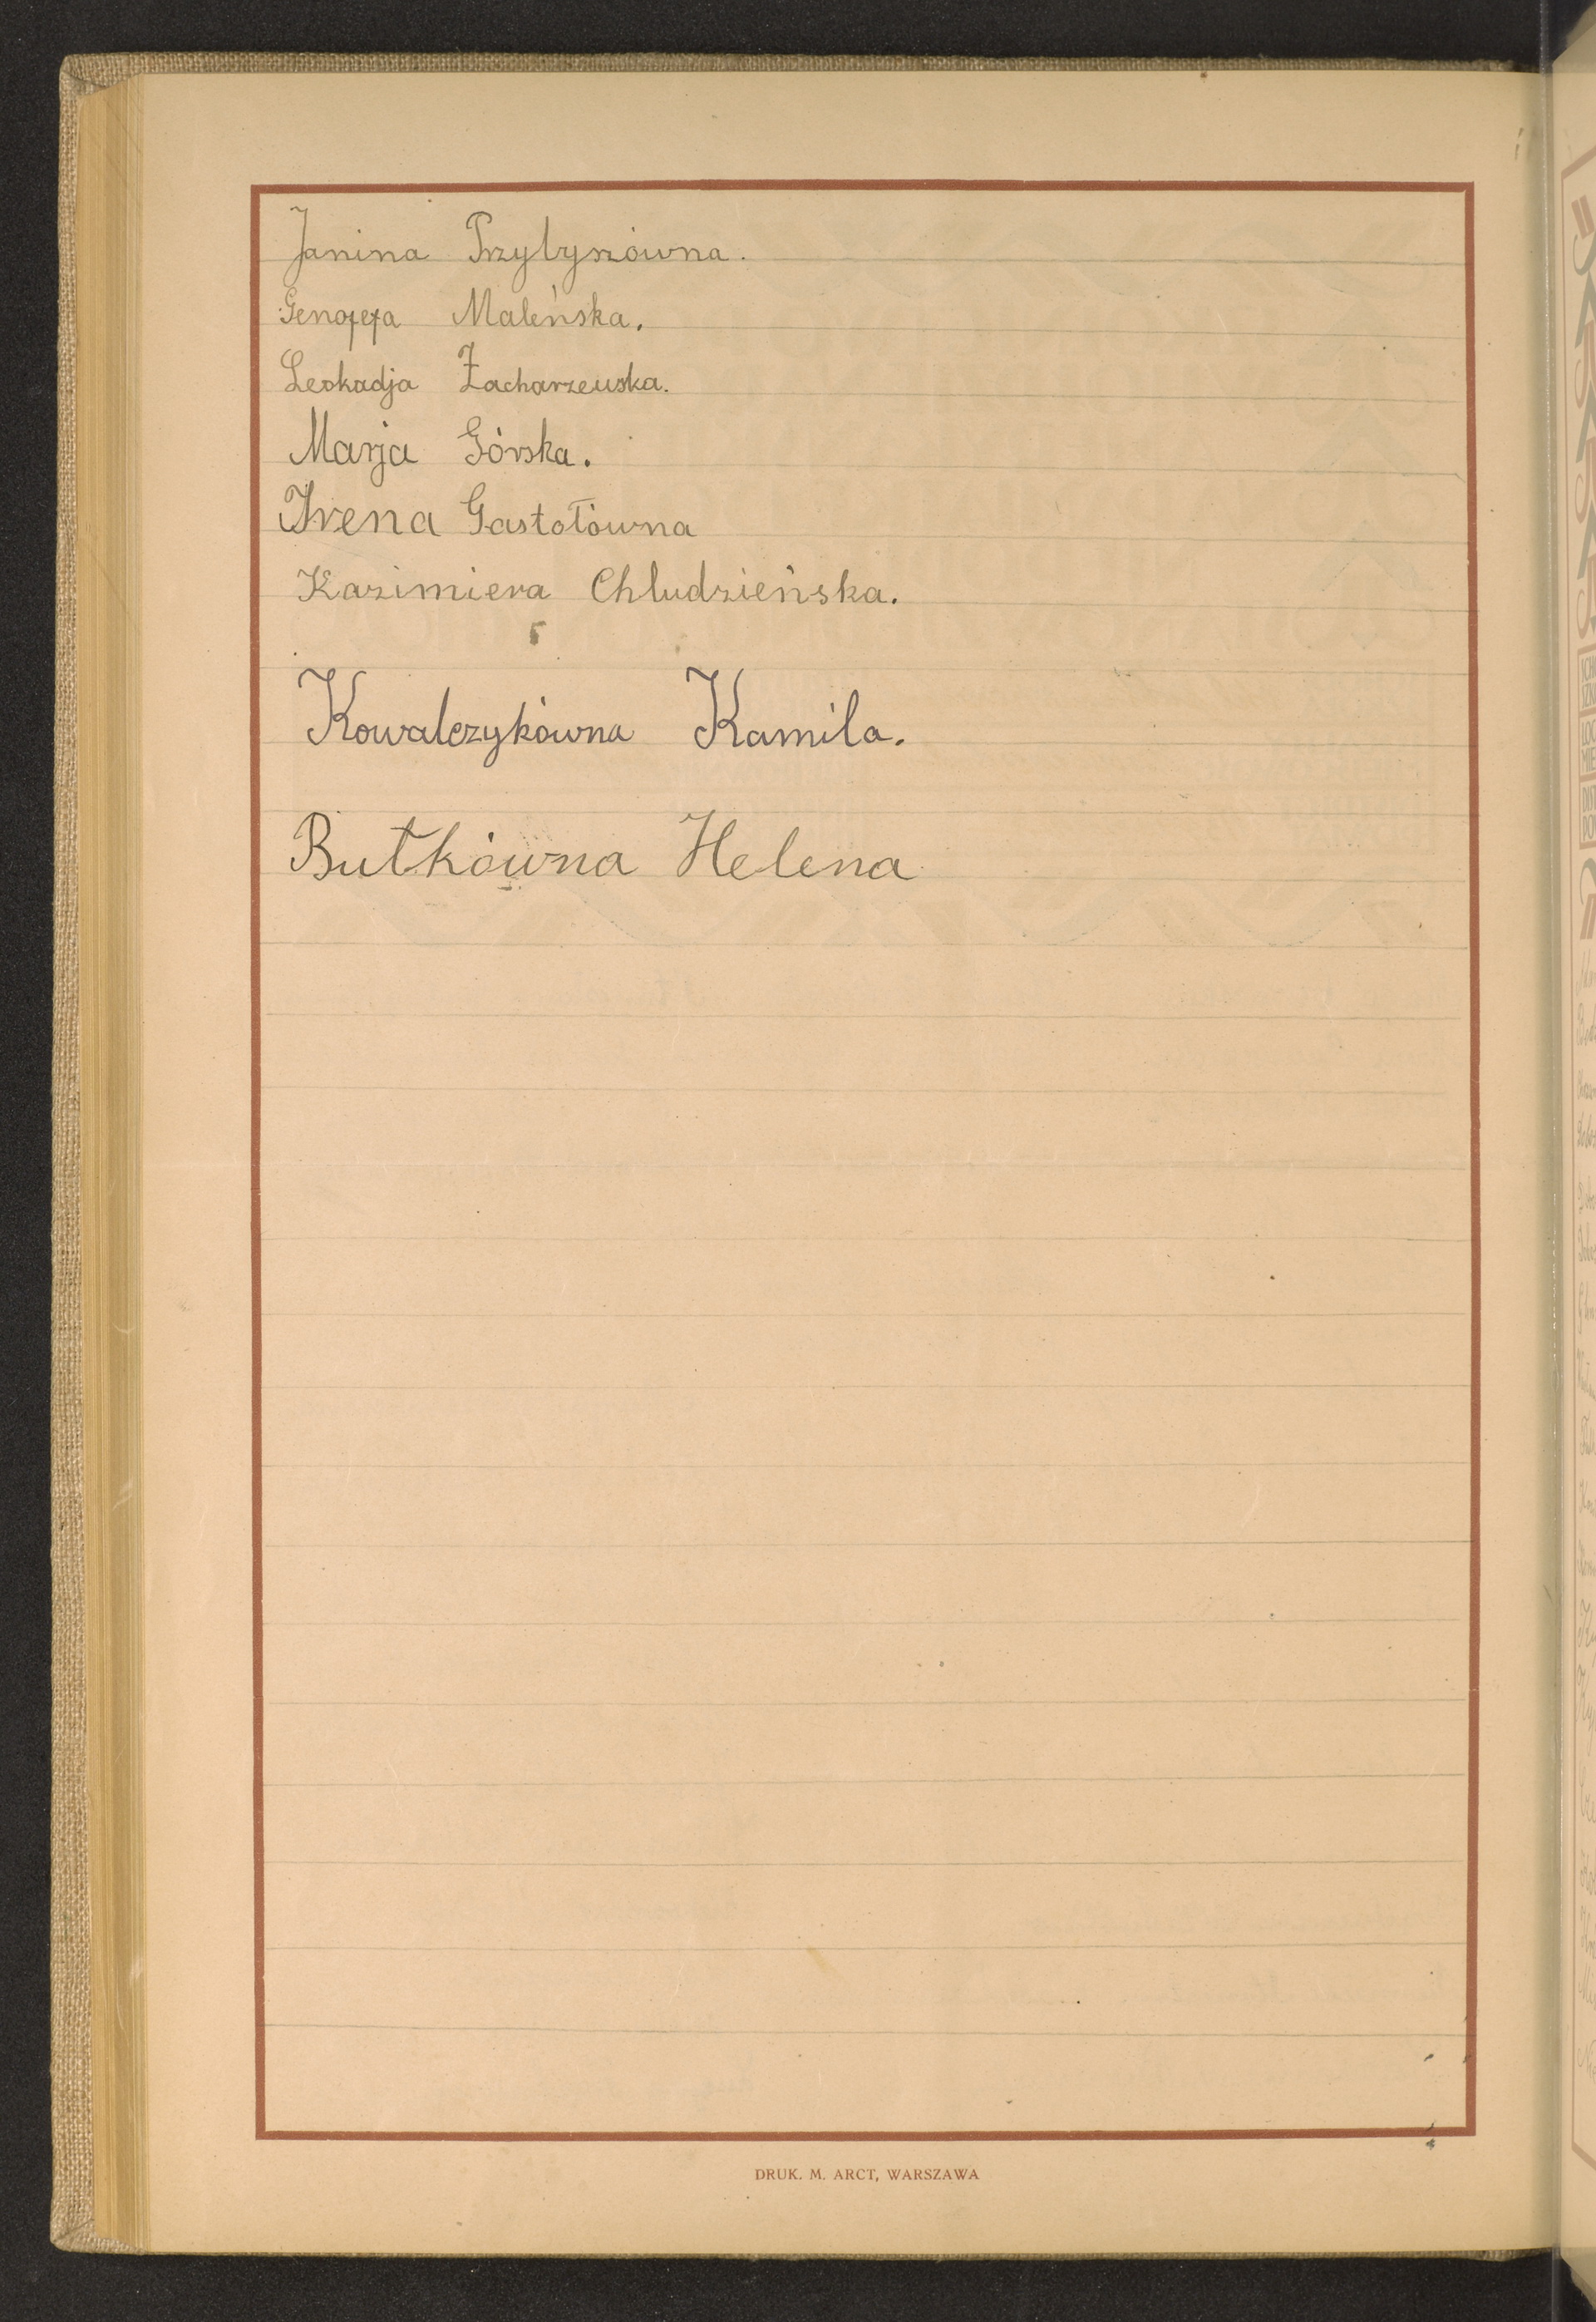 Janina Przybyszówna.
Genofefa Maleńska.
Leokadja Zacharzewska.
Marja Górska.
Irena Gastołówna
Kazimiera Chludzieńska.
Kowalczykówna Kamila.
Butkówna Helena
DRUK. M. ARCT, WARSZAWA